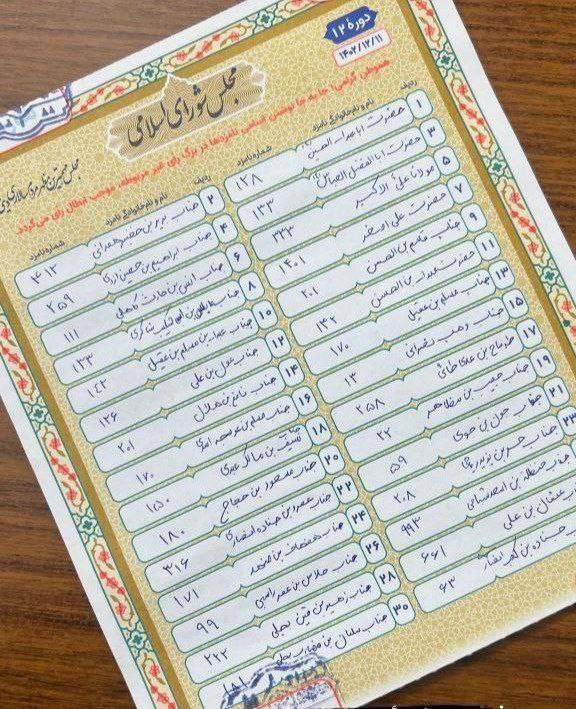 دورهٔ ۱۲
۱۴۰۲/۱۲/۱۱
مجلس شورای اسلامی
هموطن گرامی! جا به جا نوشتن اسامی نامزدها در برگ رای غیر مربوطه، موجب ابطال رای می گردد.
ردیف نام و نام خانوادگی نامزد شماره نامزد
۱ حضرت اباعبدالله الحسین ۱۲۸
۳ حضرت اباالفضل العباس ۱۳۳
۵ مولانا علی الاکبر ۳۳۳
۷ حضرت علی اصغر ۱۴۰۱
۹ جناب قاسم بن الحسن ۲۰۱
۱۱ حضرت عبدالله بن الحسن ۱۳۲
۱۳ جناب مسلم بن عقیل ۱۷۰
۱۵ جناب وهب نصرانی ۱۳
۱۷ طرماح بن عدی طائی ۲۵۸
۱۹ جناب حبیب بن مظاهر ۲۲
۲۱ جناب جون بن حوی ۵۹
۲۳ جناب حر بن یزید ریاحی ۲۰۸
جناب حنظله بن اسعد شبامی ۹۹۳
بن علی ۶۶۱
جناده بن کعب انصاری ۶۳
ردیف نام و نام خانوادگی نامزد شماره نامزد
۲ جناب بریر بن خضیر همدانی ۴۱۲
۴ جناب ابراهیم بن حصین ازدی ۲۵۹
۶ جناب انس بن حارث کاهلی ۱۱۱
۸ جناب ۱۳۳
۱۰ جناب عبدالله بن مسلم بن عقیل ۱۴۲
۱۲ جناب عون بن علی ۱۲۶
۱۴ جناب نافع بن هلال ۲۰۱
۱۶ جناب مسلم بن عوسجه اسدی ۱۷۰
۱۸ بن مالک ۱۵۰
۲۰ جناب مسعود بن حجاج ۱۸۰
۲۲ جناب عمرو بن جناده انصاری ۳۱۶
۲۴ جناب ۱۷۱
۲۶ جناب حلاس بن عمر راسبی ۹۹
۲۸ جناب زهیر بن قین بجلی ۲۲۲
۳۰ جناب سلمان بن مضارب بجلی ۱۸۱